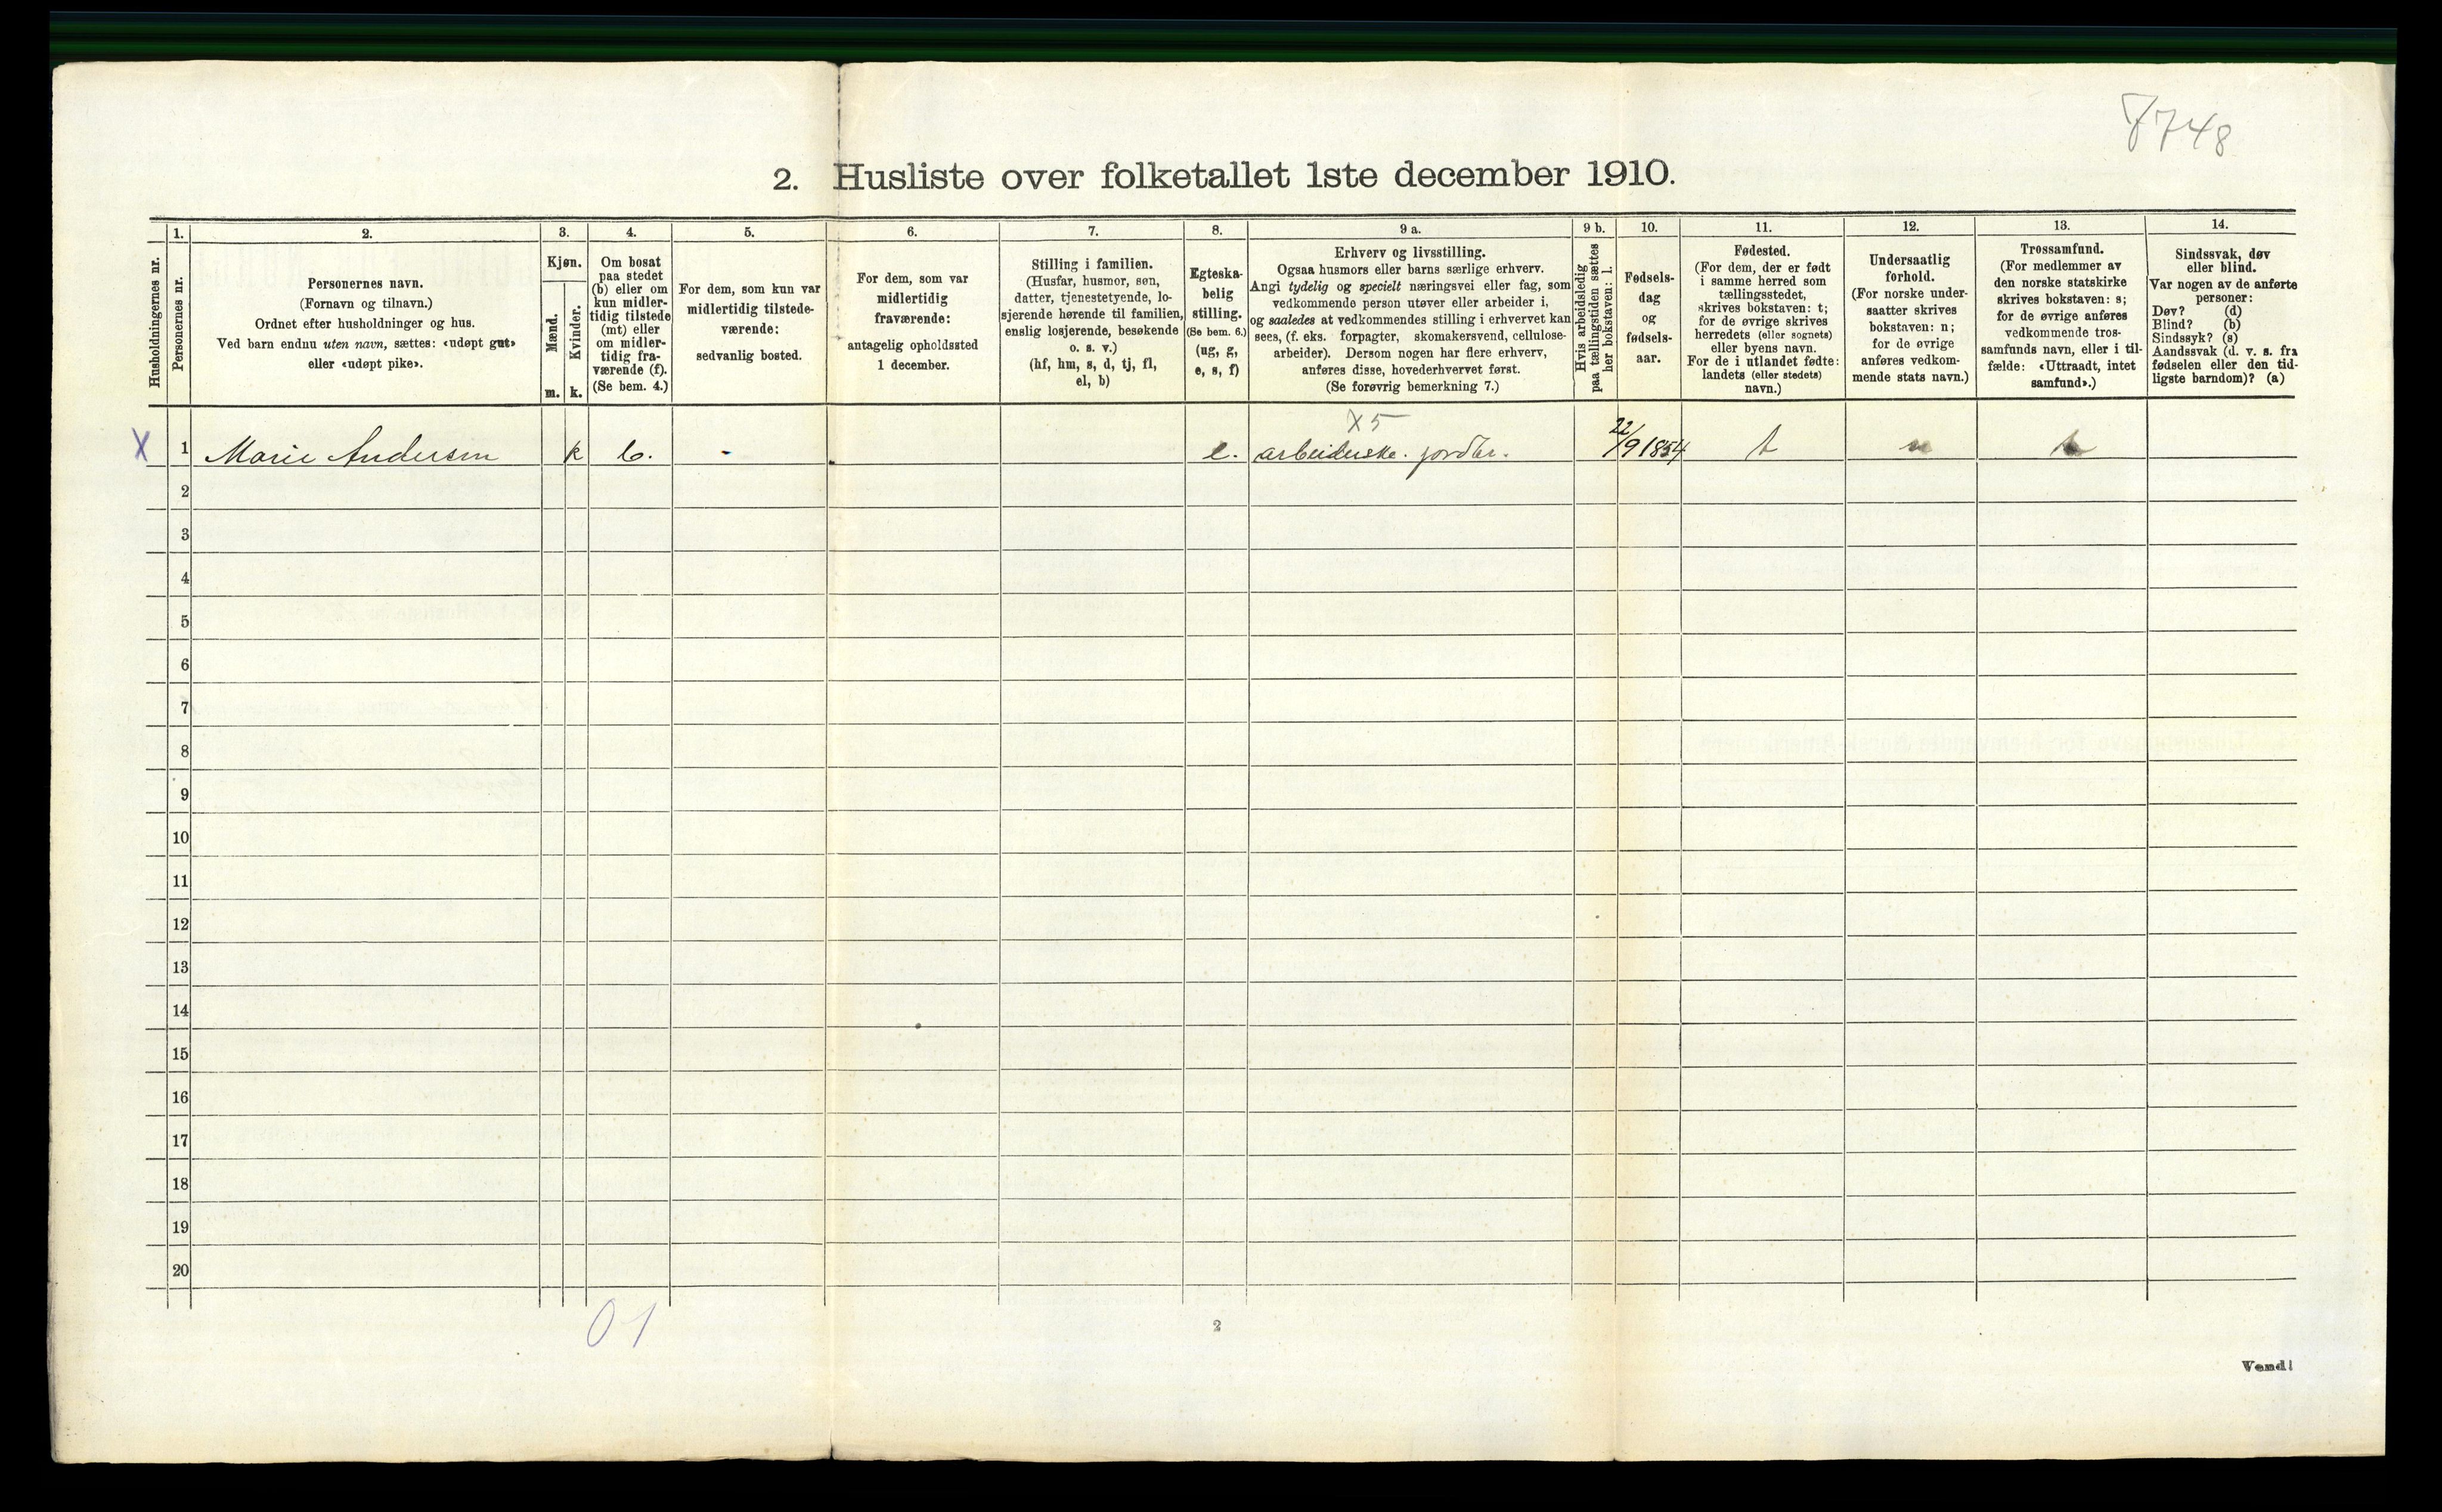 8748
2. Husliste over folketallet 1ste december 1910.
Husholdningernes nr.
1.
Personernes nr.
2.
Personernes navn.
(Fornavn og tilnavn.)
Ordnet efter husholdninger og hus.
Ved barn endnu uten navn, sættes: «udøpt gut»
eller «udøpt pike».
3.
Kjøn.
Mænd.
m.
Kvinder.
k.
4.
Om bosat
paa stedet
(b) eller om
kun midler-
tidig tilstede
(mt) eller
om midler-
tidig fra-
værende (f).
(Se bem. 4.)
5.
For dem, som kun var
midlertidig tilstede-
værende:
sedvanlig bosted.
6.
For dem, som var
midlertidig
fraværende:
antagelig opholdssted
1 december.
7.
Stilling i familien.
(Husfar, husmor, søn,
datter, tjenestetyende, lo-
sjerende hørende til familien,
enslig losjerende, besøkende
o. s. v.)
(hf, hm, s, d, tj, fl,
el, b)
8.
Egteska-
belig
stilling.
(Se bem. 6.)
(ug, g,
e, s, f)
9 a.
Erhverv og livsstilling.
Ogsaa husmors eller barns særlige erhverv.
Angi tydelig og specielt næringsvei eller fag, som
vedkommende person utøver eller arbeider i,
og saaledes at vedkommendes stilling i erhvervet kan
sees, (f. eks. forpagter, skomakersvend, cellulose-
arbeider). Dersom nogen har flere erhverv,
anføres disse, hovederhvervet først.
(Se forøvrig bemerkning 7.)
9 b.
Hvis arbeidsledig
paa tællingstiden sættes
her bokstaven: l.
10.
Fødsels-
dag
og
fødsels-
aar.
11.
Fødested.
(For dem, der er født
i samme herred som
tællingsstedet,
skrives bokstaven: t;
for de øvrige skrives
herredets (eller sognets)
eller byens navn.
For de i utlandet fødte:
landets (eller stedets)
navn.)
12.
Undersaatlig
forhold.
(For norske under-
saatter skrives
bokstaven: n;
for de øvrige
anføres vedkom-
mende stats navn.)
13.
Trossamfund.
(For medlemmer av
den norske statskirke
skrives bokstaven: s;
for de øvrige anføres
vedkommende tros-
samfunds navn, eller i til-
fælde: «Uttraadt, intet
samfund».)
14.
Sindssvak, døv
eller blind.
Var nogen av de anførte
personer:
Døv? (d)
Blind? (b)
Sindssyk? (s)
Aandssvak (d. v. s. fra
fødselen eller den tid-
ligste barndom)? (a)
X5
X 1 Marie Andersen k b. - e. arbeiderske. jordbr. 22/9 1854 t n
2
3
4
5
6
7
8
9
10
11
12
13
14
15
16
17
18
19
20
01
2
Vend!